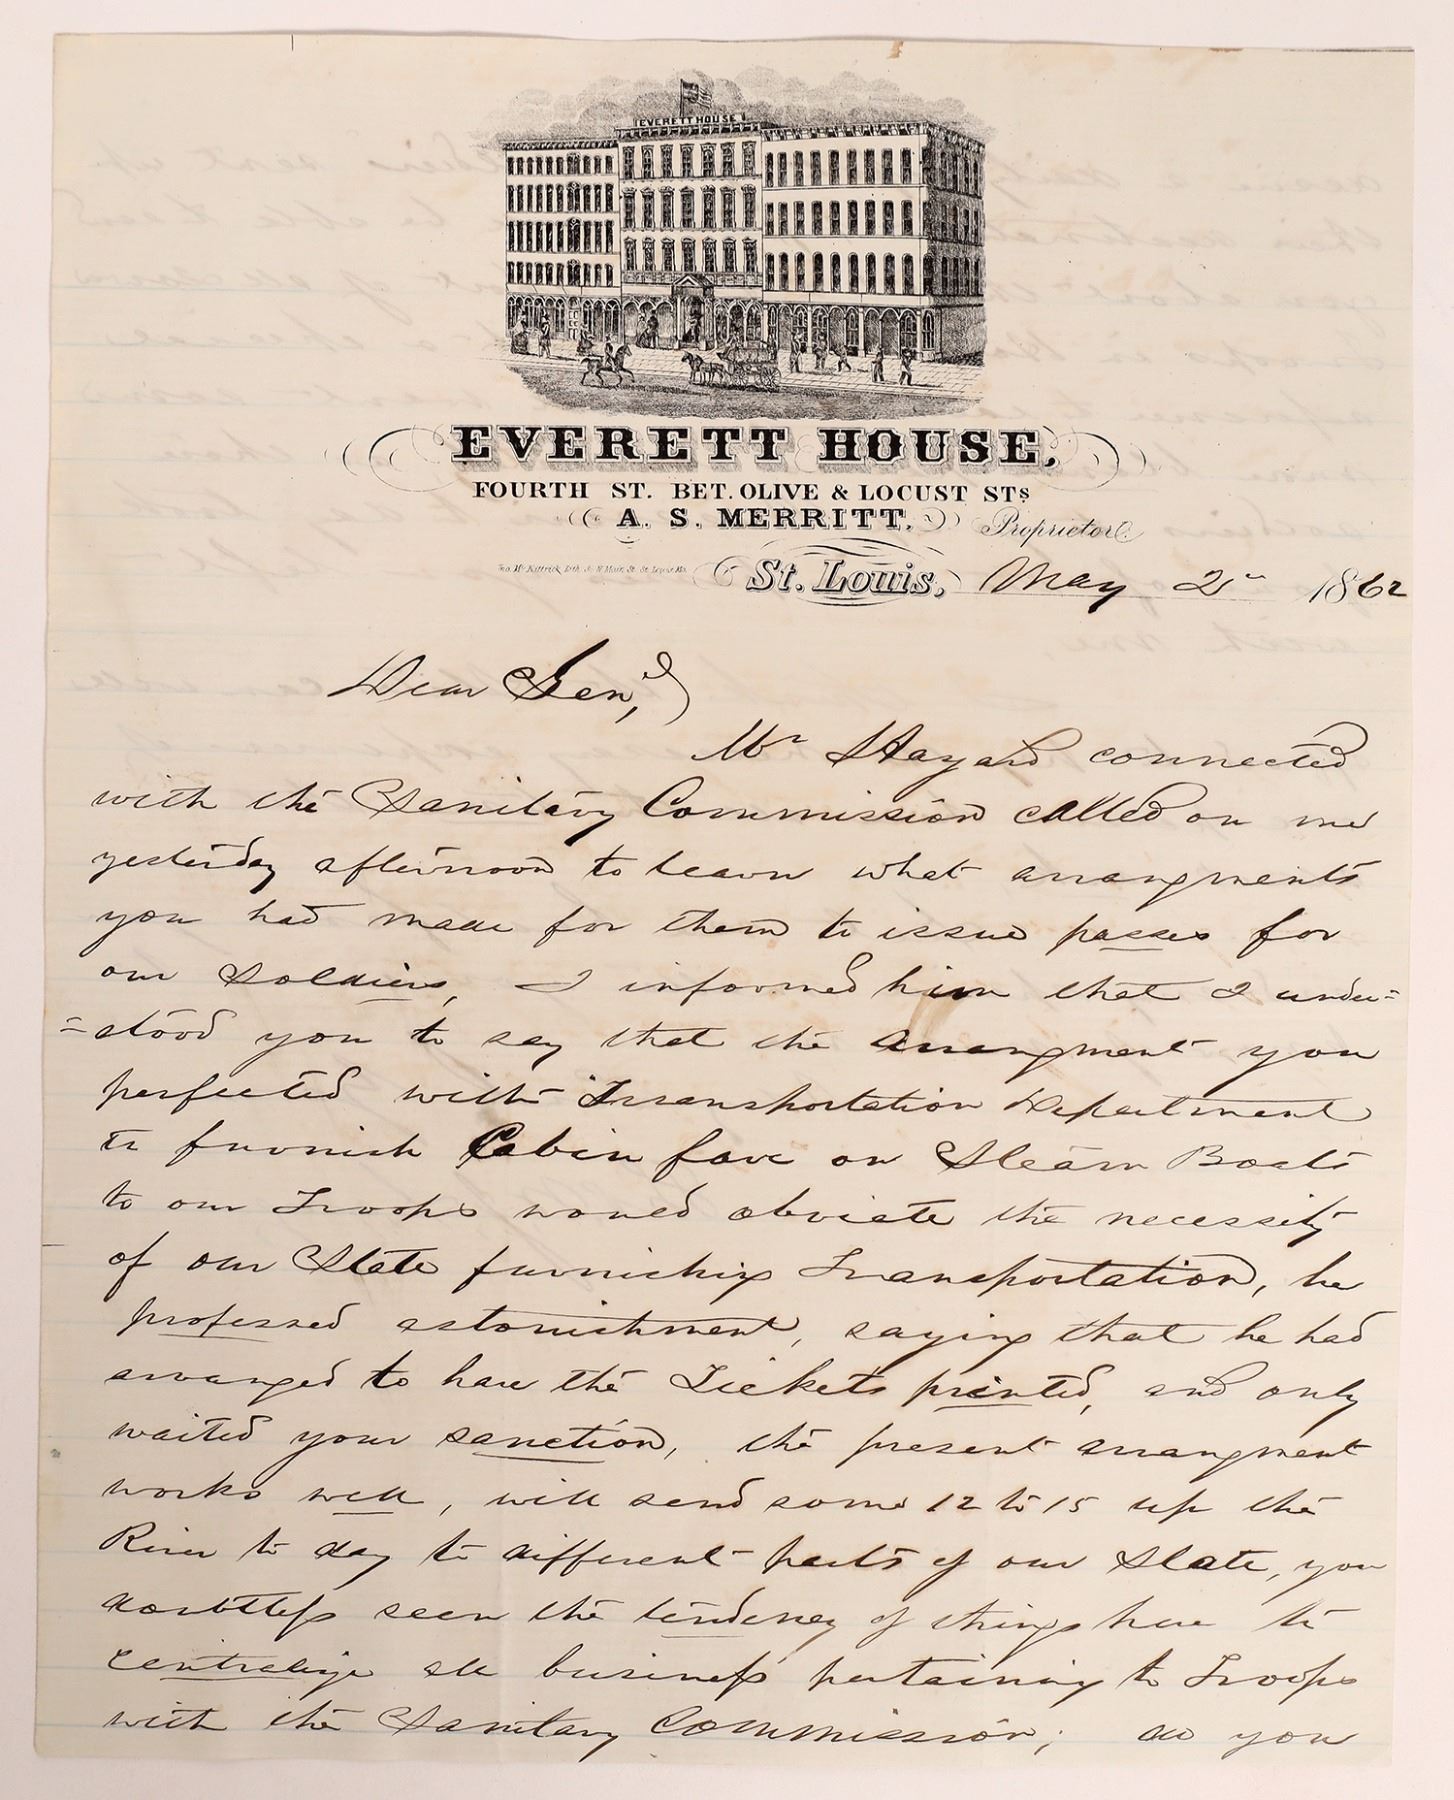 EVERETT HOUSE
EVERETT HOUSE,
FOURTH ST. BET. OLIVE & LOCUST STS
A. S. MERRITT, Proprietor.
Geo. McKittrick Lith. St. Louis Mo.
St. Louis, May 2 1862
Dear Genl,
Mr Hayard connected
with the Sanitary Commission called on me
yesterday afternoon to learn what arrangments
you had made for them to issue passes for
our soldiers, I informed him that I under=
=stood you to say that the arrangment you
perfected with Transportation Department
to furnish Cabin fare on Steam Boats
to our Troops would obviate the necessity
of our State furnishing Transportation, he
professed astonishment, saying that he had
arranged to have the Tickets printed, and only
waited your sanction, the present arrangment
works well, will send some 12 to 15 up the
River to day to different parts of our State, you
doubtless seen the tendency of things here to
centralize all business pertaining to Troops
with the Sanitary Commission; do you